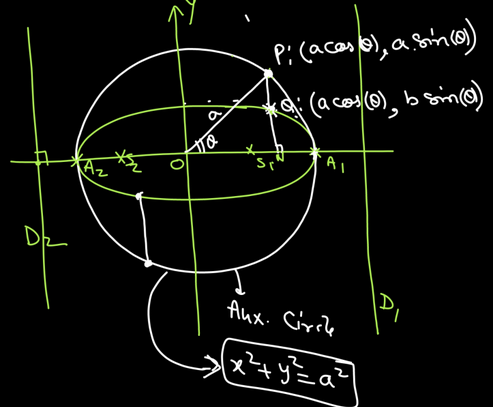 Y
P: (a cos(θ), a.sin(θ))
Q: (a cos(θ), b sin(θ))
a
θ
A₂
S₂
O
S₁
A₁
D₂
D₁
Aux. Circle
x² + y² = a²